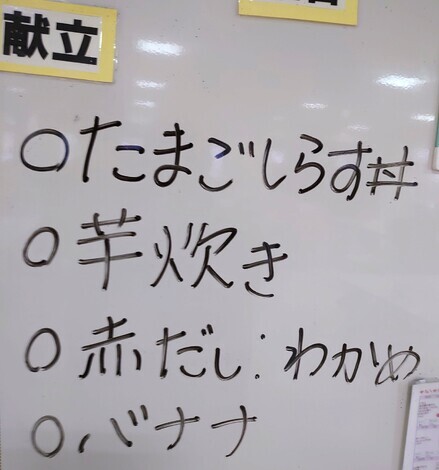 献立
○たまごしらす丼
○芋炊き
○赤だし:わかめ
○バナナ